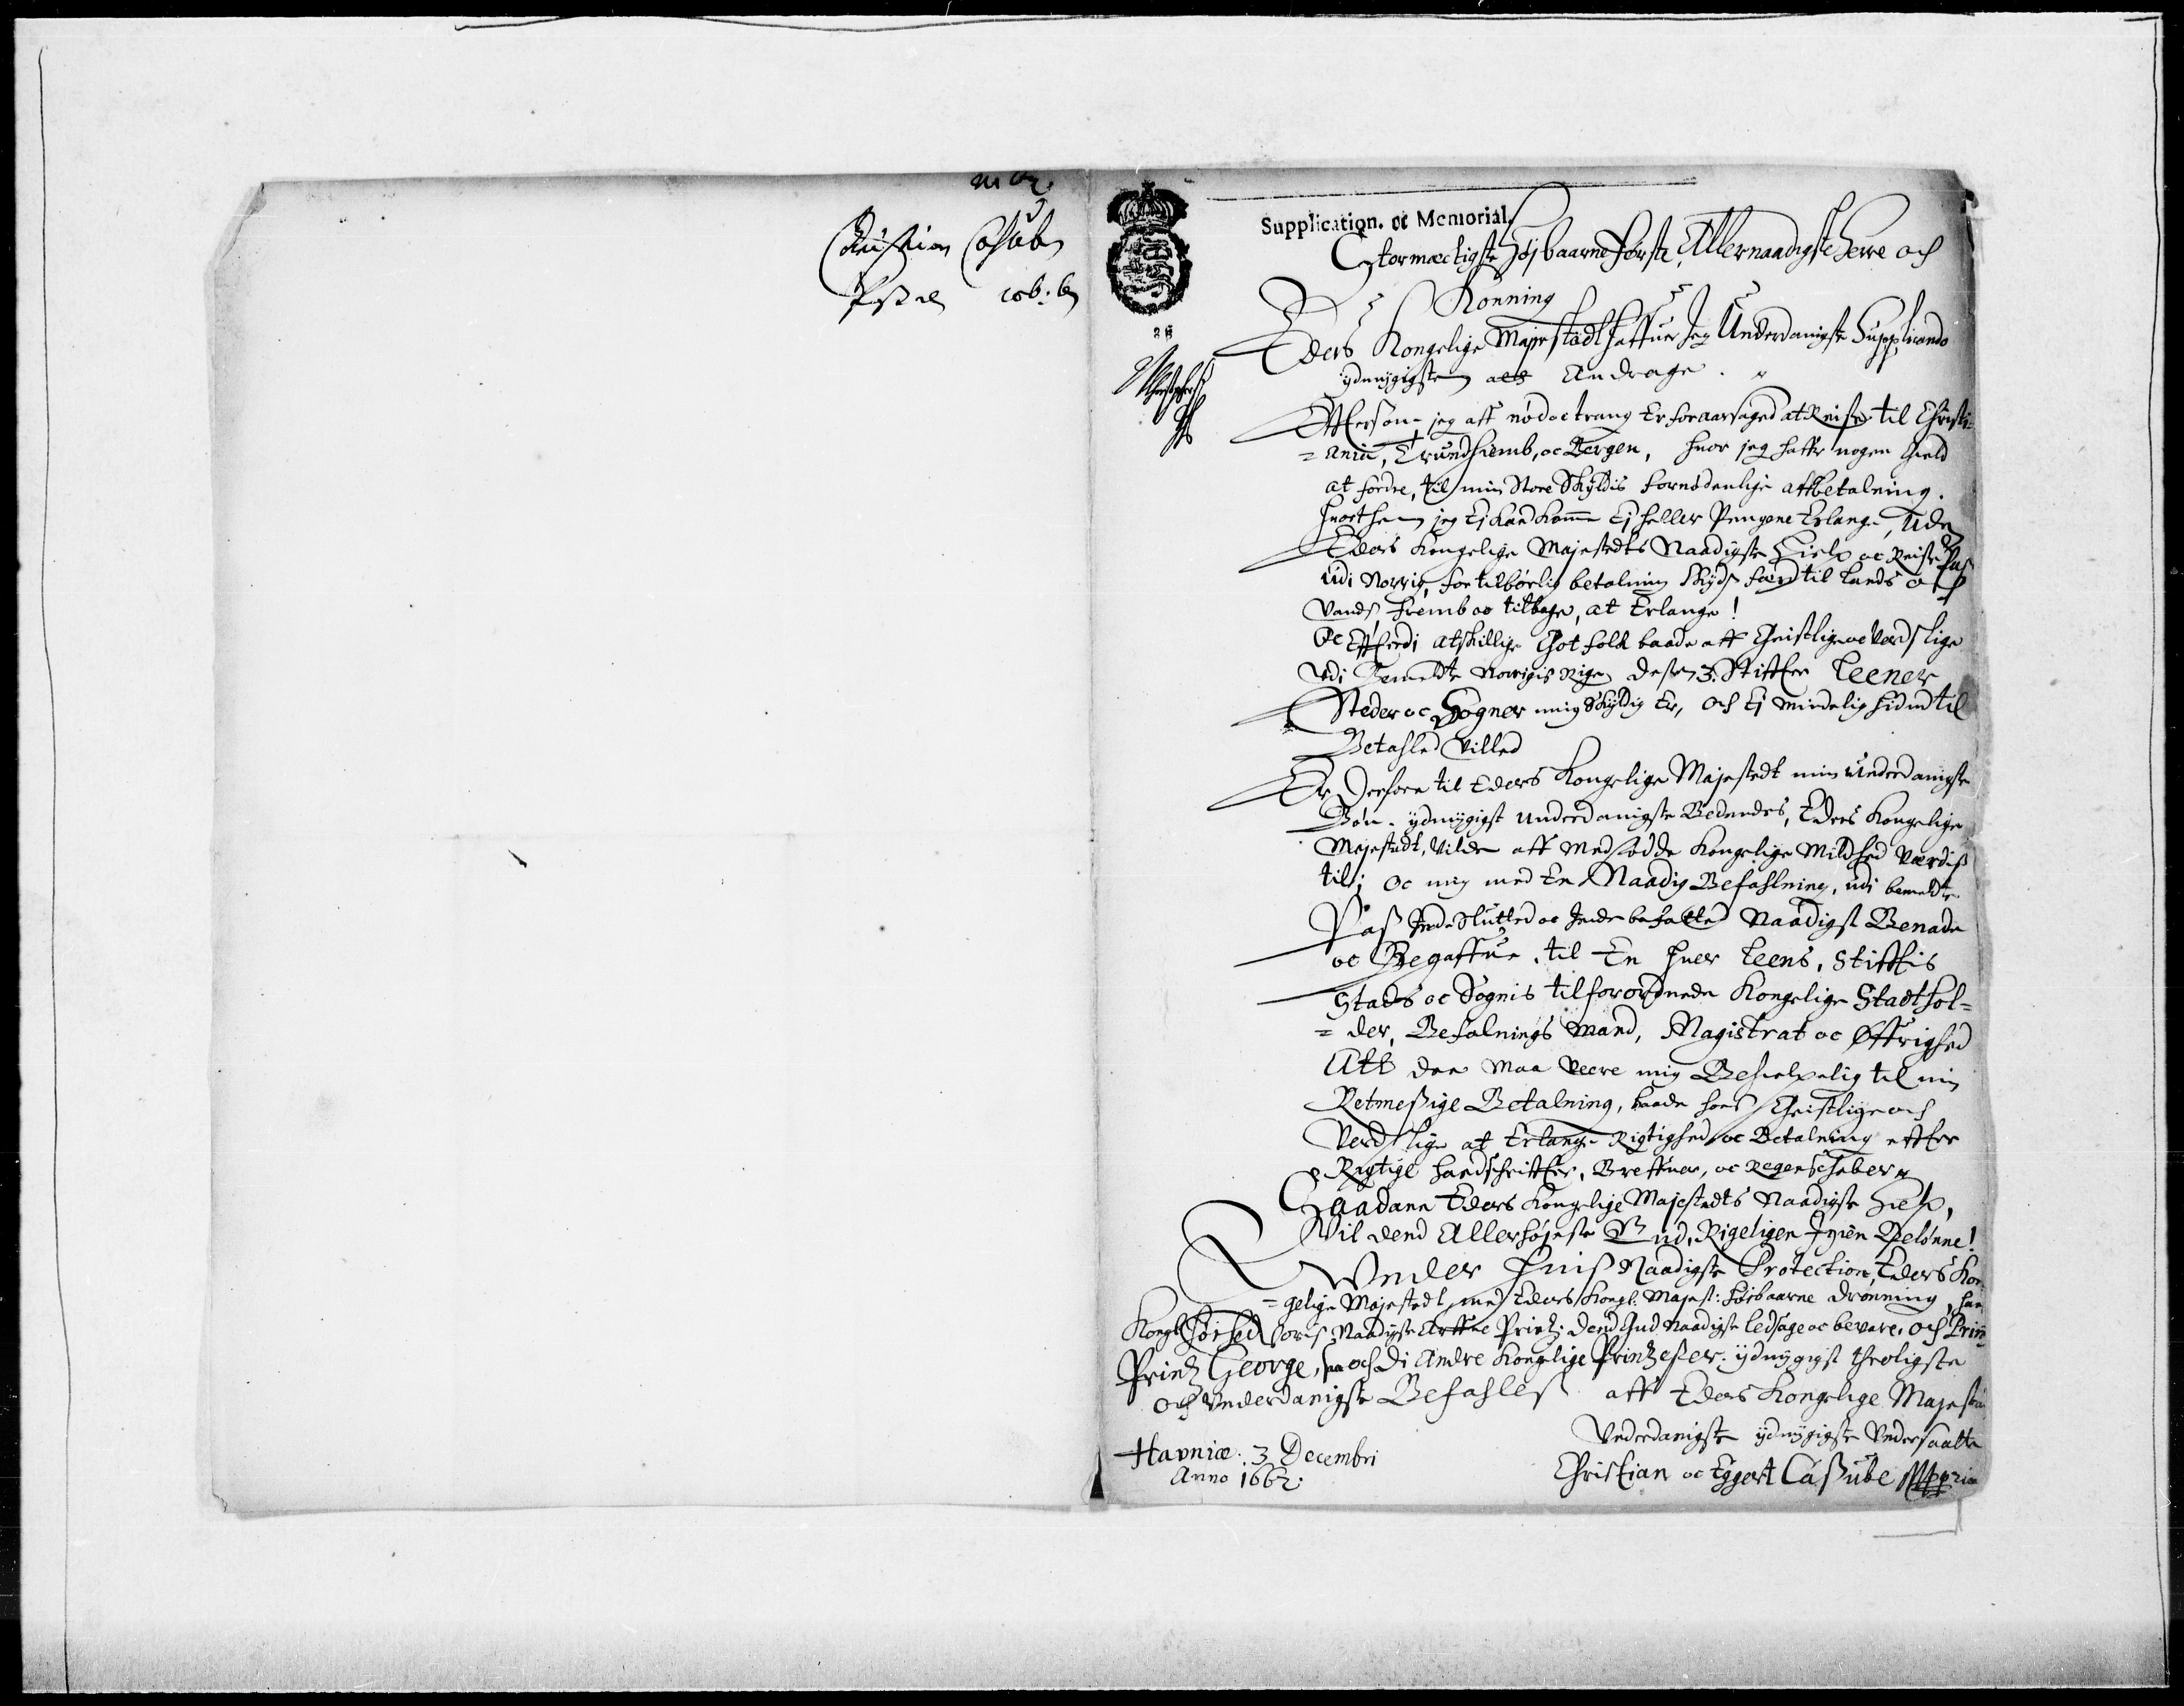 Christian Casube
Supplication. oc Memorial.
Stormectigste Højbaarne Første, Allernaadigste Herre och
Konning
Eders Kongelige Majestædt haffuer Jeg Underdanigste Supplicando
ydmygigsten at Andrage.
Effterson jeg aff nød oc trang Er foraarsaged at Reise til Christi-
=ania, Trundhiemb, oc Bergen, huor jeg haffr nogen Gield
at fordre, til min Store Skyldis fornødenlige affbetalning.
huorhen jeg Ej kand komme Ej heller Pengene Erlange, Uden
Eders Kongelige Majestedts Naadigste Hielp oc Reise Pas
udi Norrig, for tilbørlig betalning Skyds færd til Lands och
Vands, fremb oc tilbage, at Erlange!
Oc Effterdi atskillige Got folk baade aff Geistlige oc Verdslige
Udi Bemeldte Norrigis Rige desse 3. Stiffter Leener
Steder oc Sogner mig Skyldig Er, och Ej mindelig hidindtil
Betahled Villed
Er Derfore til Eders Kongelige Majestedt min Underdanigste
Bøn. ydmygigst Underdanigste Bedendes, Eders Kongelige
Majestedt, Vilde aff Medfødde Kongelige Mildhed Værdis
til; oc mig med En Naadig Befahlning, udi bemeldte
Pas Inde Slutted oc Inde befatted Naadigst Benade
oc Begaffue, til En huer Leens, Stifftis
Stads oc Sognis tilforordnede Kongelige Stadthol=
=der, Befalnings Mand, Magistrat oc Øffrighed
Att dee Maa Veere mig Behielpelig til min
Retmeßige Betalning, baade hoes Geistlige och
Verdslige at Erlange Rigtighed oc Betalning effter
Rigtige Handschriffter, Breffuer, oc Regenschaber
Saadane Eders Kongelige Majestedts Naadigste Hielp,
Vil dend Allerhøjeste Gud, Rigeligen Igien Belønne!
Under huis Naadigste Protection, Eders Kon
=gelige Majestedt, med Eders Kongl: Majest: Højbaarne Dronning, han
Kongl Høihed Voris Naadigste Arffue Printz. dend Gud Naadigste ledsage oc bevare, och Prin
Printz George, saa och di Andre Kongelige Printzesser. ydmygigst throligste
och Underdanigste Befahles aff Eders Kongelige Majestæ
Underdanigste ydmygigste Undersaatte
Havniæ: 3 Decembri
Anno 1662.
Christian oc Eggert Caßube